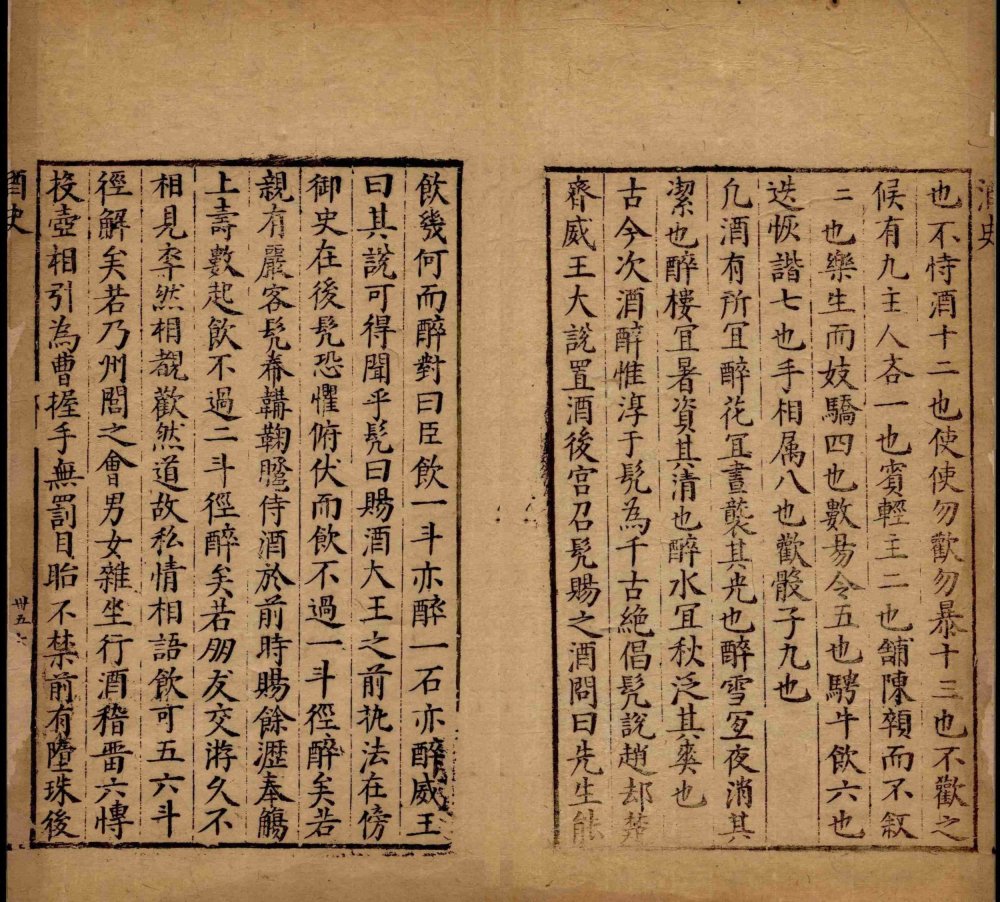 酒史
也不恃酒十二也使使勿歡勿暴十三也不歡之
候有九主人吝一也賓輕主二也舖陳而不叙
三也樂生而妓驕四也數易令五也騁牛飲六也
迭恢諧七也手相属八也歡骰子九也
凢酒有所冝醉花冝晝襲其光也醉雪冝夜消其
潔也醉樓冝暑資其清也醉水冝秋泛其爽也
古今次酒醉惟淳于髠為千古絶倡髠說趙却楚
齊威王大說置酒後宮召髠賜之酒問曰先生能
飲幾何而醉對曰臣飲一斗亦醉一石亦醉威王
曰其說可得聞乎髠曰賜酒大王之前执法在傍
御史在後髠恐懼俯伏而飲不過一斗徑醉矣若
親有嚴客髠帣韝鞠侍酒於前時賜餘瀝奉觴
上壽數起飲不過二斗徑醉矣若朋友交游久不
相見卒然相覩歡然道故私情相語飲可五六斗
徑解矣若乃州閭之會男女雜坐行酒稽畱六愽
投壺相引為曹握手無罰目眙不禁前有墮珠後
酒史
卅五